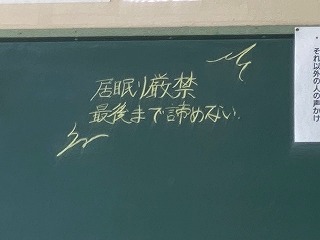 居眠り厳禁
最後まで諦めない.
それ以外の人の声かけ